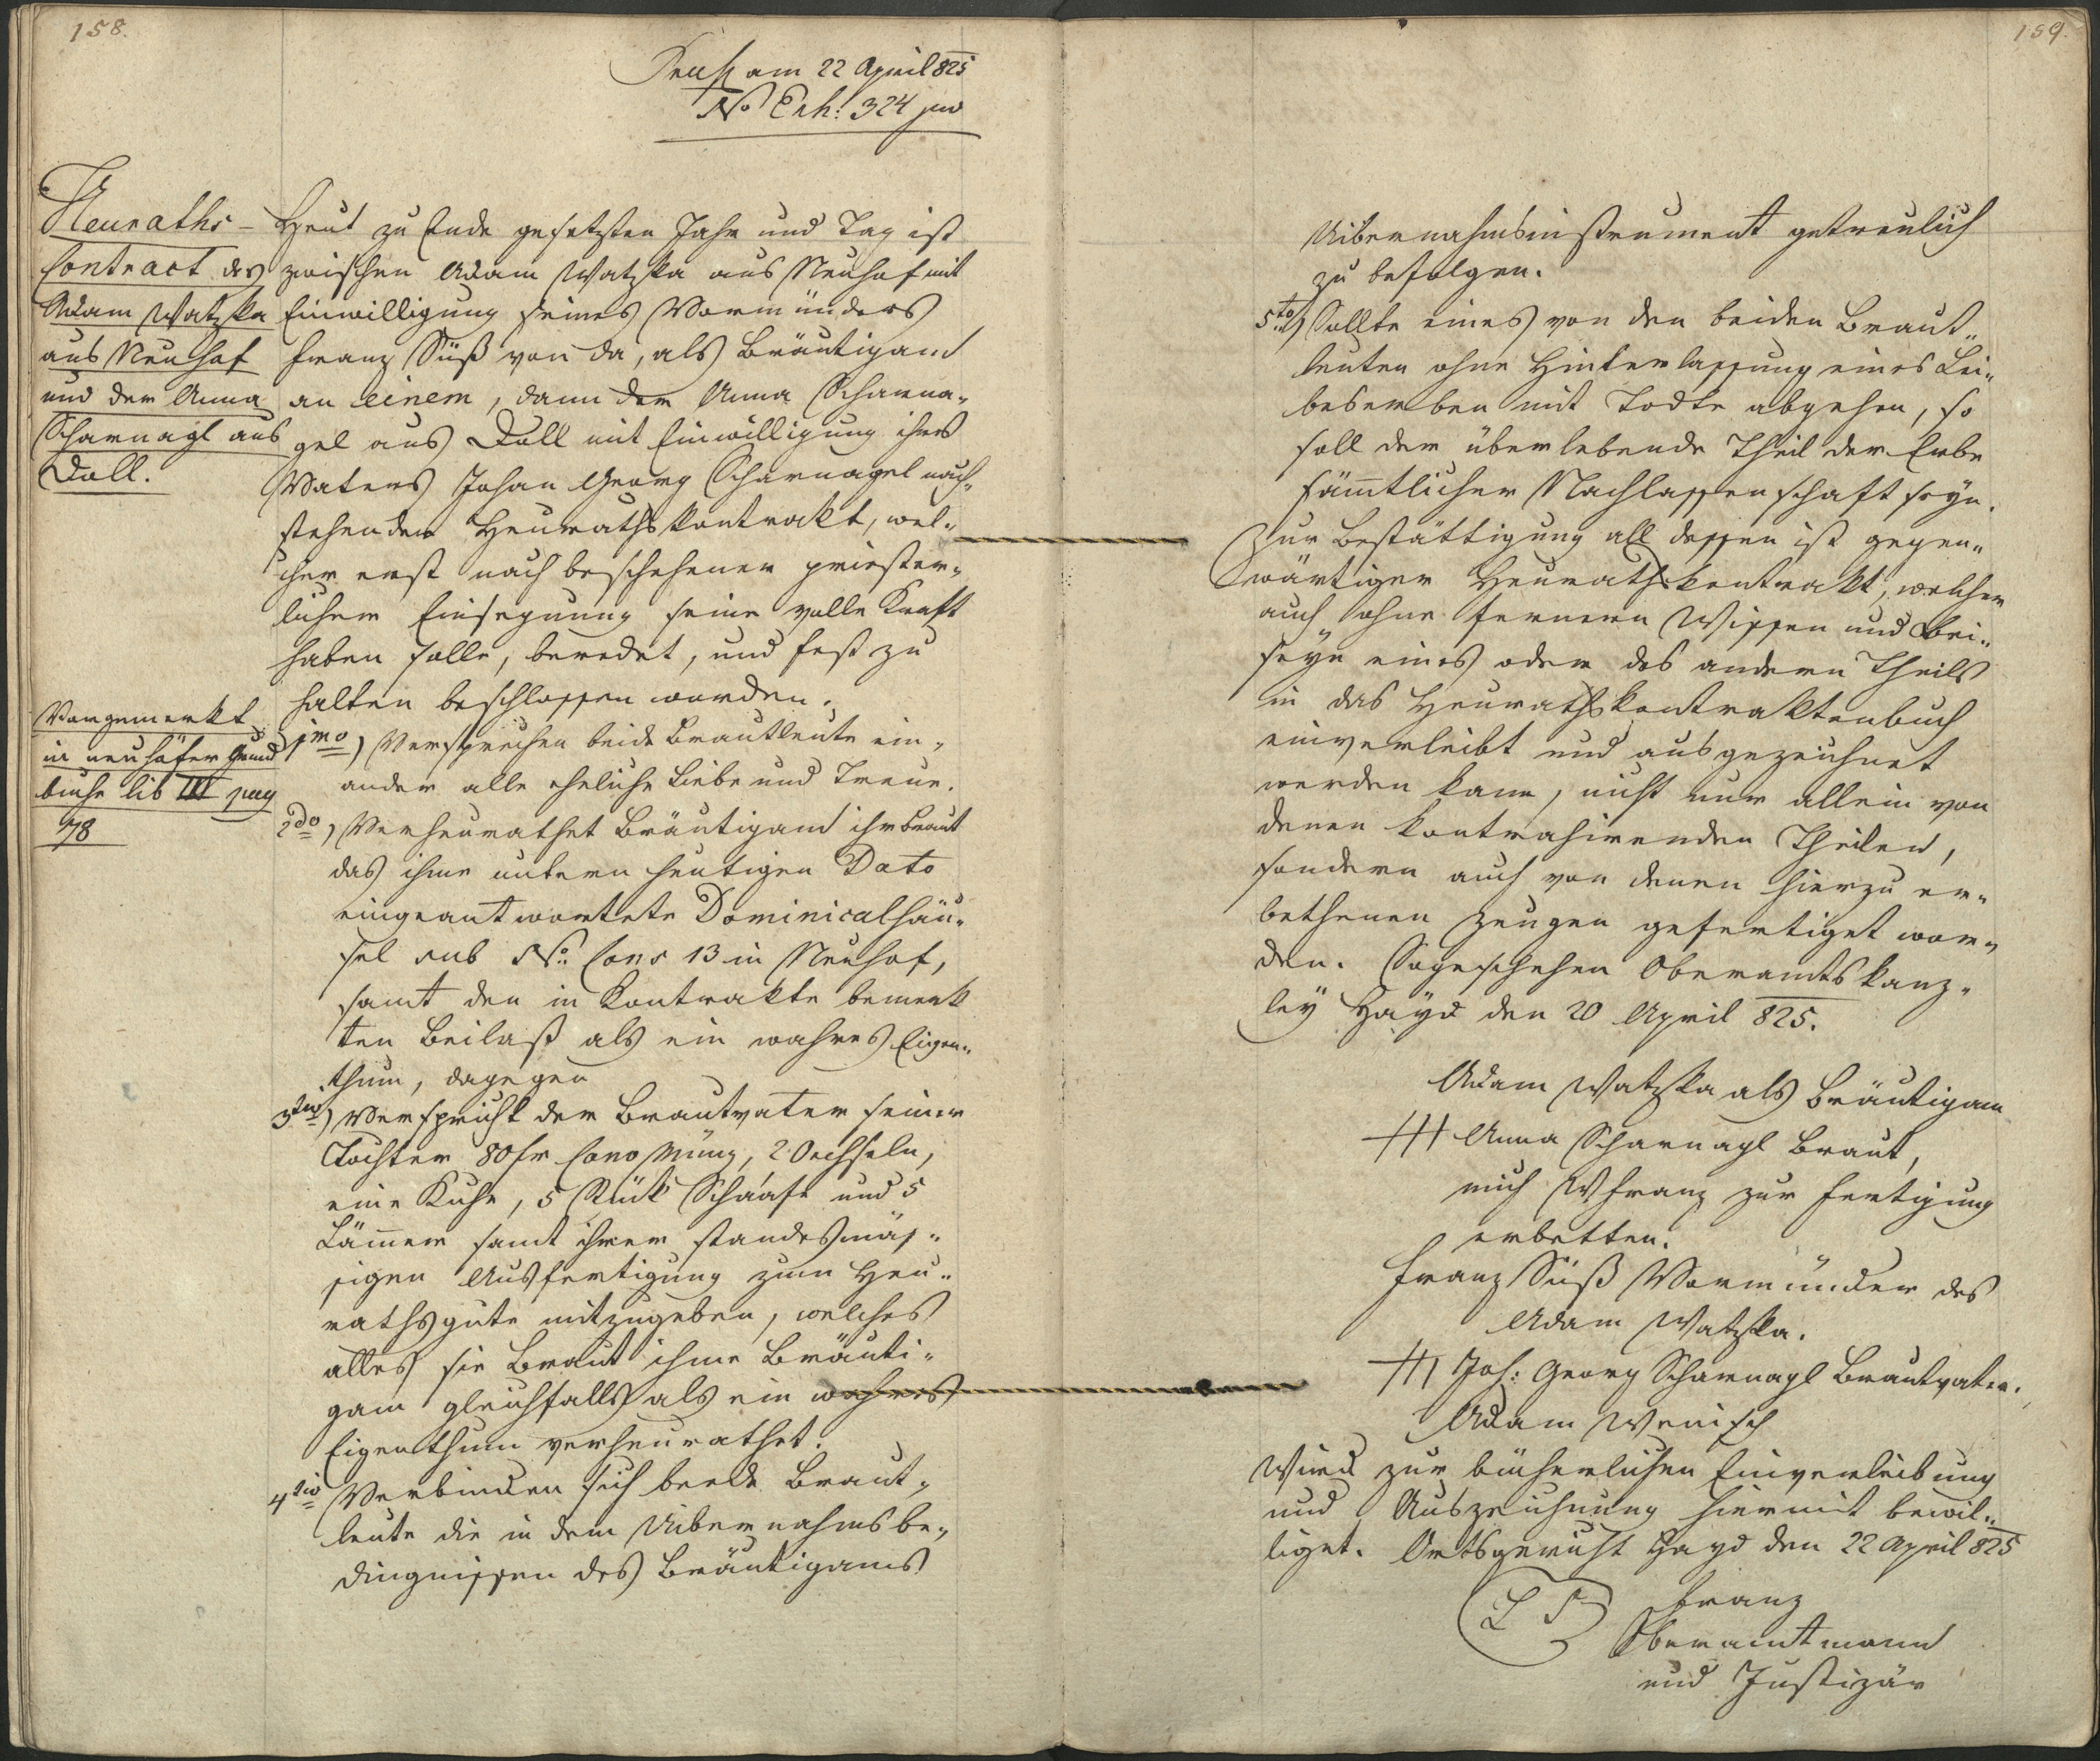 158.
am 22 April 825
No Exh: 324 jud
Heuraths-
Contract des
Adam Watzka
aus Neuhof
und der Anna
Scharnagl aus
Doll.
Heut zu Ende gesetzten Jahr und Tag ist
zwischen Adam Watzka aus Neuhof mit
Einwilligung seines Vormünders
Franz Süß von da, als Bräutigam
an einem, dann der Anna Scharna-
gel aus Doll mit Einwilligung ihres
Vaters Johan Georg Scharnagel nach-
stehender Heurathskontrakt, wel-
cher erst nach beschehener priester-
licher Einsegnung seine volle Kraft
haben solle, beredet, und fest zu
halten beschlossen worden.
Vorgemerkt
in neuhöfer Grund
buche lib III pag
78
1mo) Versprechen beide Brautleute ein-
ander alle eheliche Liebe und Treue.
2do) Verheurathet Bräutigam ihr Braut
das ihme untern heutigen Dato
eingeantwortete Dominicalhäu-
sel sub No. Cons 13 in Neuhof,
samt den in Kontrakte bemerk
ten Beilaß als ein wahres Eigen-
thum, dagegen
3tio) Verspricht der Brautvater seiner
Tochter 80 fr Conv Münz, 2 Oechseln,
eine Kuhe, 5 Stück Schaafe und 5
Lämmer samt ihrer standesmäs-
sigen Ausfertigung zum Heu-
rathsgute mitzugeben, welches
alles sie Braut ihme Bräuti-
gam gleichfalls als ein wahres
Eigenthum verheurathet.
4to Verbinden sich beede Braut-
leute die in dem Uibernahmsbe-
dingnissen des Bräutigams
159.
Uibernahmsinstrument getreulich
zu befolgen.
5to) Sollte eines von den beiden Braut-
leuten ohne Hinterlassung eines Lei-
beserben mit Todte abgehen, so
soll der überlebende Theil der Erbe
sämtlicher Nachlassenschaft seyn.
Zur Bestättigung all dessen ist gegen-
wärtiger Heurathskontrakt, welcher
auch ohne fernern Wissen und Bei-
seyn eines oder des andern Theils
in das Heurathskontraktenbuch
einverleibt und ausgezeichnet
werden kann, nicht nur allein von
denen kontrahirenden Theilen,
sondern auch von denen hierzu er-
bethenen Zeugen gefertiget wor-
den. So geschehen Oberamtskanz-
ley Hayd den 20 April 825.
Adam Watzka als Bräutigam
+++ Anna Scharnagl Braut,
mich Franz zur Fertigung
erbetten.
Franz Süß Vormünder des
Adam Watzka.
+++ Joh: Georg Scharnagl Brautvater.
Adam Wenisch
Wird zur bücherlichen Einverleibung
und Auszeichnung hiermit bewil-
liget. Ortsgericht Hayd den 22 April 825
L S
Franz
Oberamtmann
und Justizär